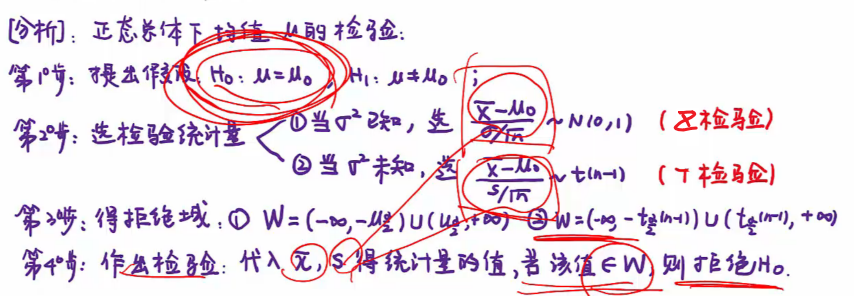 [分析]：正态总体下均值μ的检验：
第1°步：提出假设 H₀：μ=μ₀，H₁：μ≠μ₀；
第2°步：选检验统计量 ①当σ²已知，选 (x̄-μ₀)/(σ/√n) ~ N(0,1) （Z检验）
②当σ²未知，选 (x̄-μ₀)/(s/√n) ~ t(n-1) （T检验）
第3°步：得拒绝域：① W=(-∞,-μ_{α/2})∪(μ_{α/2},+∞) ② W=(-∞,-t_{α/2}(n-1))∪(t_{α/2}(n-1),+∞)
第4°步：作出检验：代入x̄,s得统计量的值，若该值∈W，则拒绝H₀.